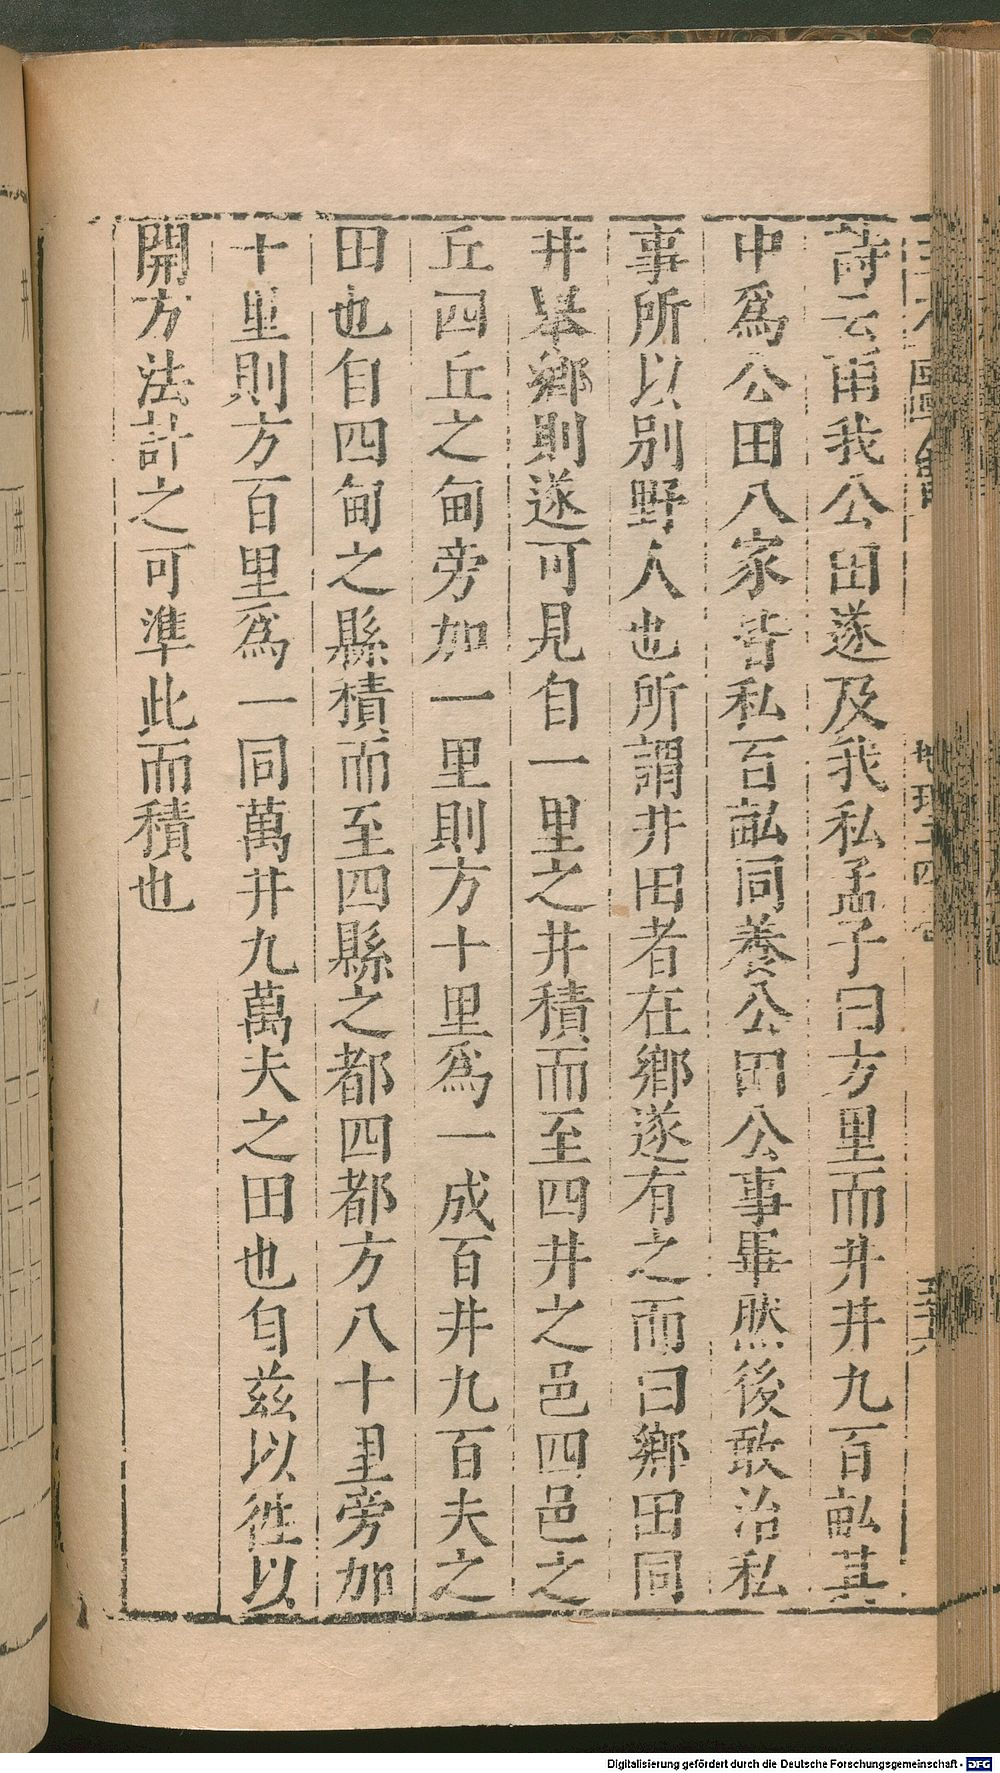 詩云雨我公田遂及我私孟子曰方里而井井九百畝其
中爲公田八家皆私百畝同養公田公事畢然後敢治私
事所以別野人也所謂井田者在鄉遂有之而曰鄉田同
井舉鄉則遂可見自一里之井積而至四井之邑四邑之
丘四丘之甸旁加一里則方十里爲一成百井九百夫之
田也自四甸之縣積而至四縣之都四都方八十里旁加
十里則方百里爲一同萬井九萬夫之田也自茲以徃以
開方法計之可準此而積也
Digitalisierung gefördert durch die Deutsche Forschungsgemeinschaft - DFG